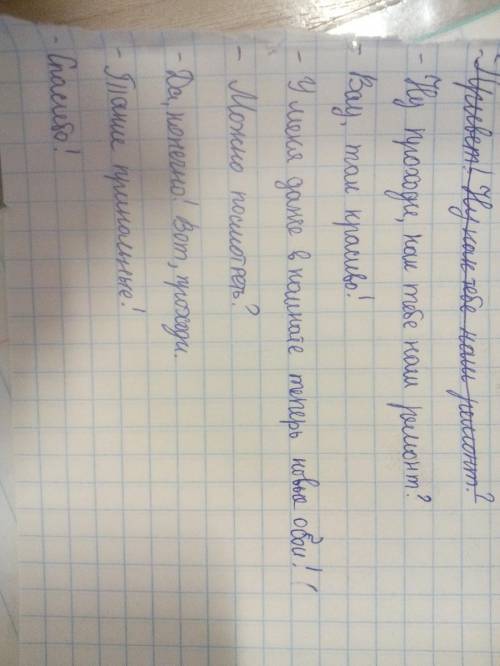 - Привет! Ну как тебе наш ремонт?
- Ну проходи, как тебе наш ремонт?
- Вау, так красиво!
- У меня даже в комнате теперь новые обои!
- Можно посмотреть?
- Да, конечно! Вот, проходи.
- Такие прикольные!
- Спасибо!